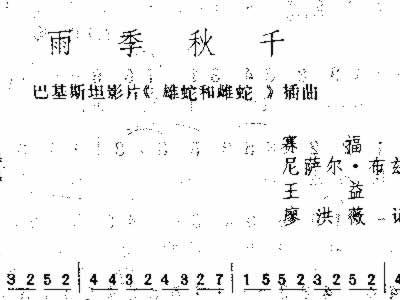 雨季秋千
巴基斯坦影片《雄蛇和雌蛇》插曲
赛福
尼萨尔·布兹
王益
廖洪薇 记
3 2 5 2 | 4 4 3 2 4 3 2 7 | 1 5 5 2 3 2 5 2 | 4